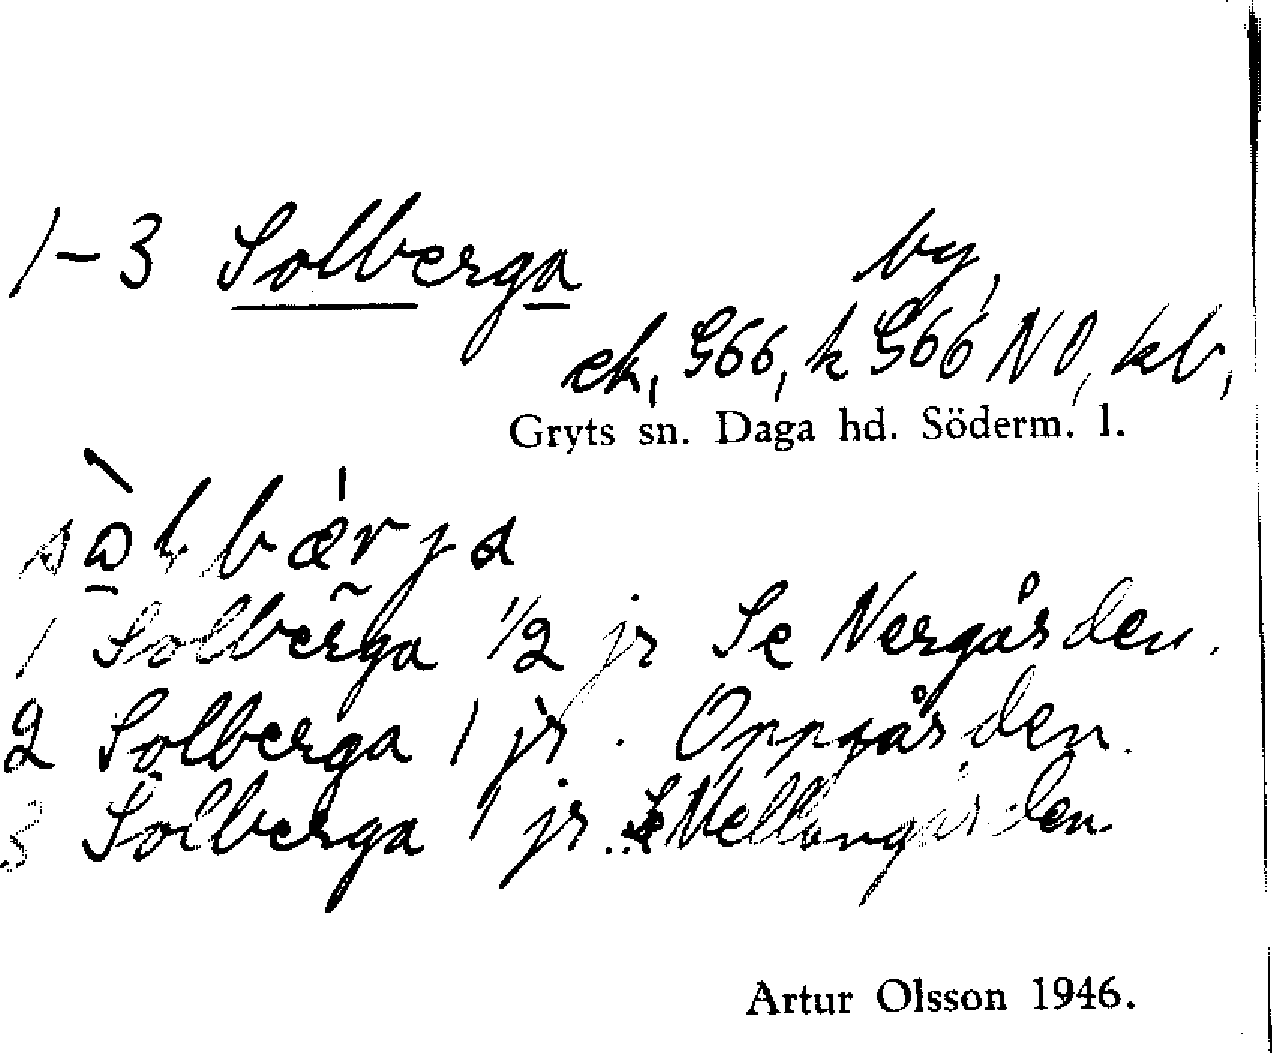 1-3 Solberga by,
ek, G66, k G66 NO, kb,
Gryts sn. Daga hd. Söderm. l.
sὼlbǽrja
1 Solberga 1/2 jr Se Nergården.
2 Solberga 1 jr. Oppgården.
3 Solberga 1 jr. Se Mellangården
Artur Olsson 1946.